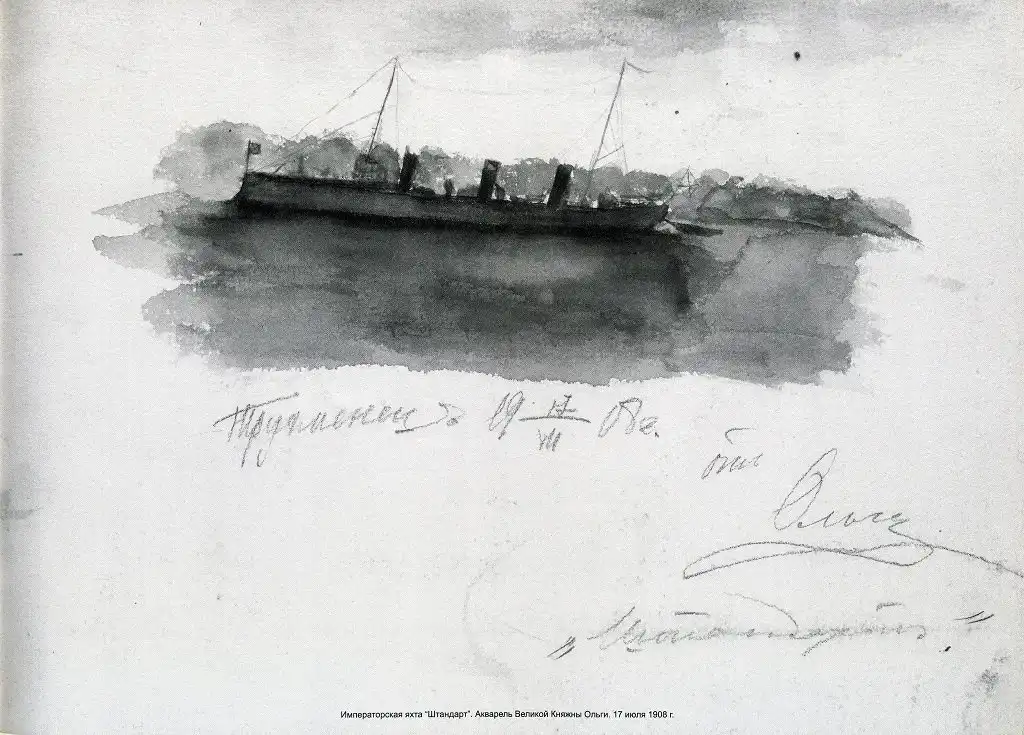 Трухменецъ 19 17/VII 08 г.
отъ
Ольги
„Штандартъ."
Императорская яхта "Штандарт". Акварель Великой Княжны Ольги. 17 июля 1908 г.